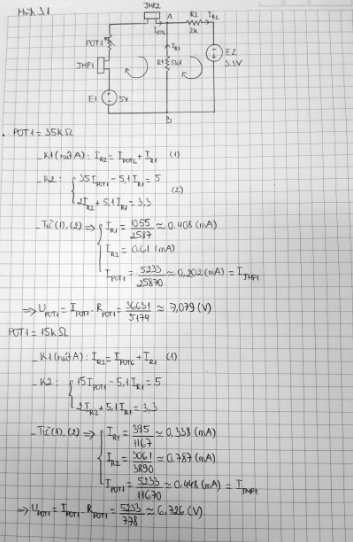 Mạch 3.1
JMP2
A
R2
I_R2
2k
POT1
I_POT1
I_R1
R1
5,1k
E2
3.3V
JMP1
E1
5V
B
. POT1 = 35KΩ
- K1 (nút A): I_R2 = I_POT1 + I_R1 (1)
- K2: { 35I_POT1 - 5,1I_R1 = 5
2I_R2 + 5,1I_R1 = 3,3 (2)
- Từ (1), (2) => { I_R1 = 1055/2587 ≈ 0,408 (mA)
I_R2 = 0.61 (mA)
I_POT1 = 5233/25870 ≈ 0,202 (mA) = I_JMP1
=> U_POT1 = I_POT1 . R_POT1 = 36631/5174 ≈ 7,079 (V)
POT1 = 15KΩ
- K1 (nút A): I_R2 = I_POT1 + I_R1 (1)
- K2: { 15I_POT1 - 5,1I_R1 = 5
2I_R2 + 5,1I_R1 = 3,3
- Từ (1), (2) => { I_R1 = 395/1167 ≈ 0,338 (mA)
I_R2 = 3061/3890 ≈ 0.787 (mA)
I_POT1 = 5233/11670 ≈ 0.448 (mA) = I_JMP1
=> U_POT1 = I_POT1 . R_POT1 = 5233/778 ≈ 6,726 (V)